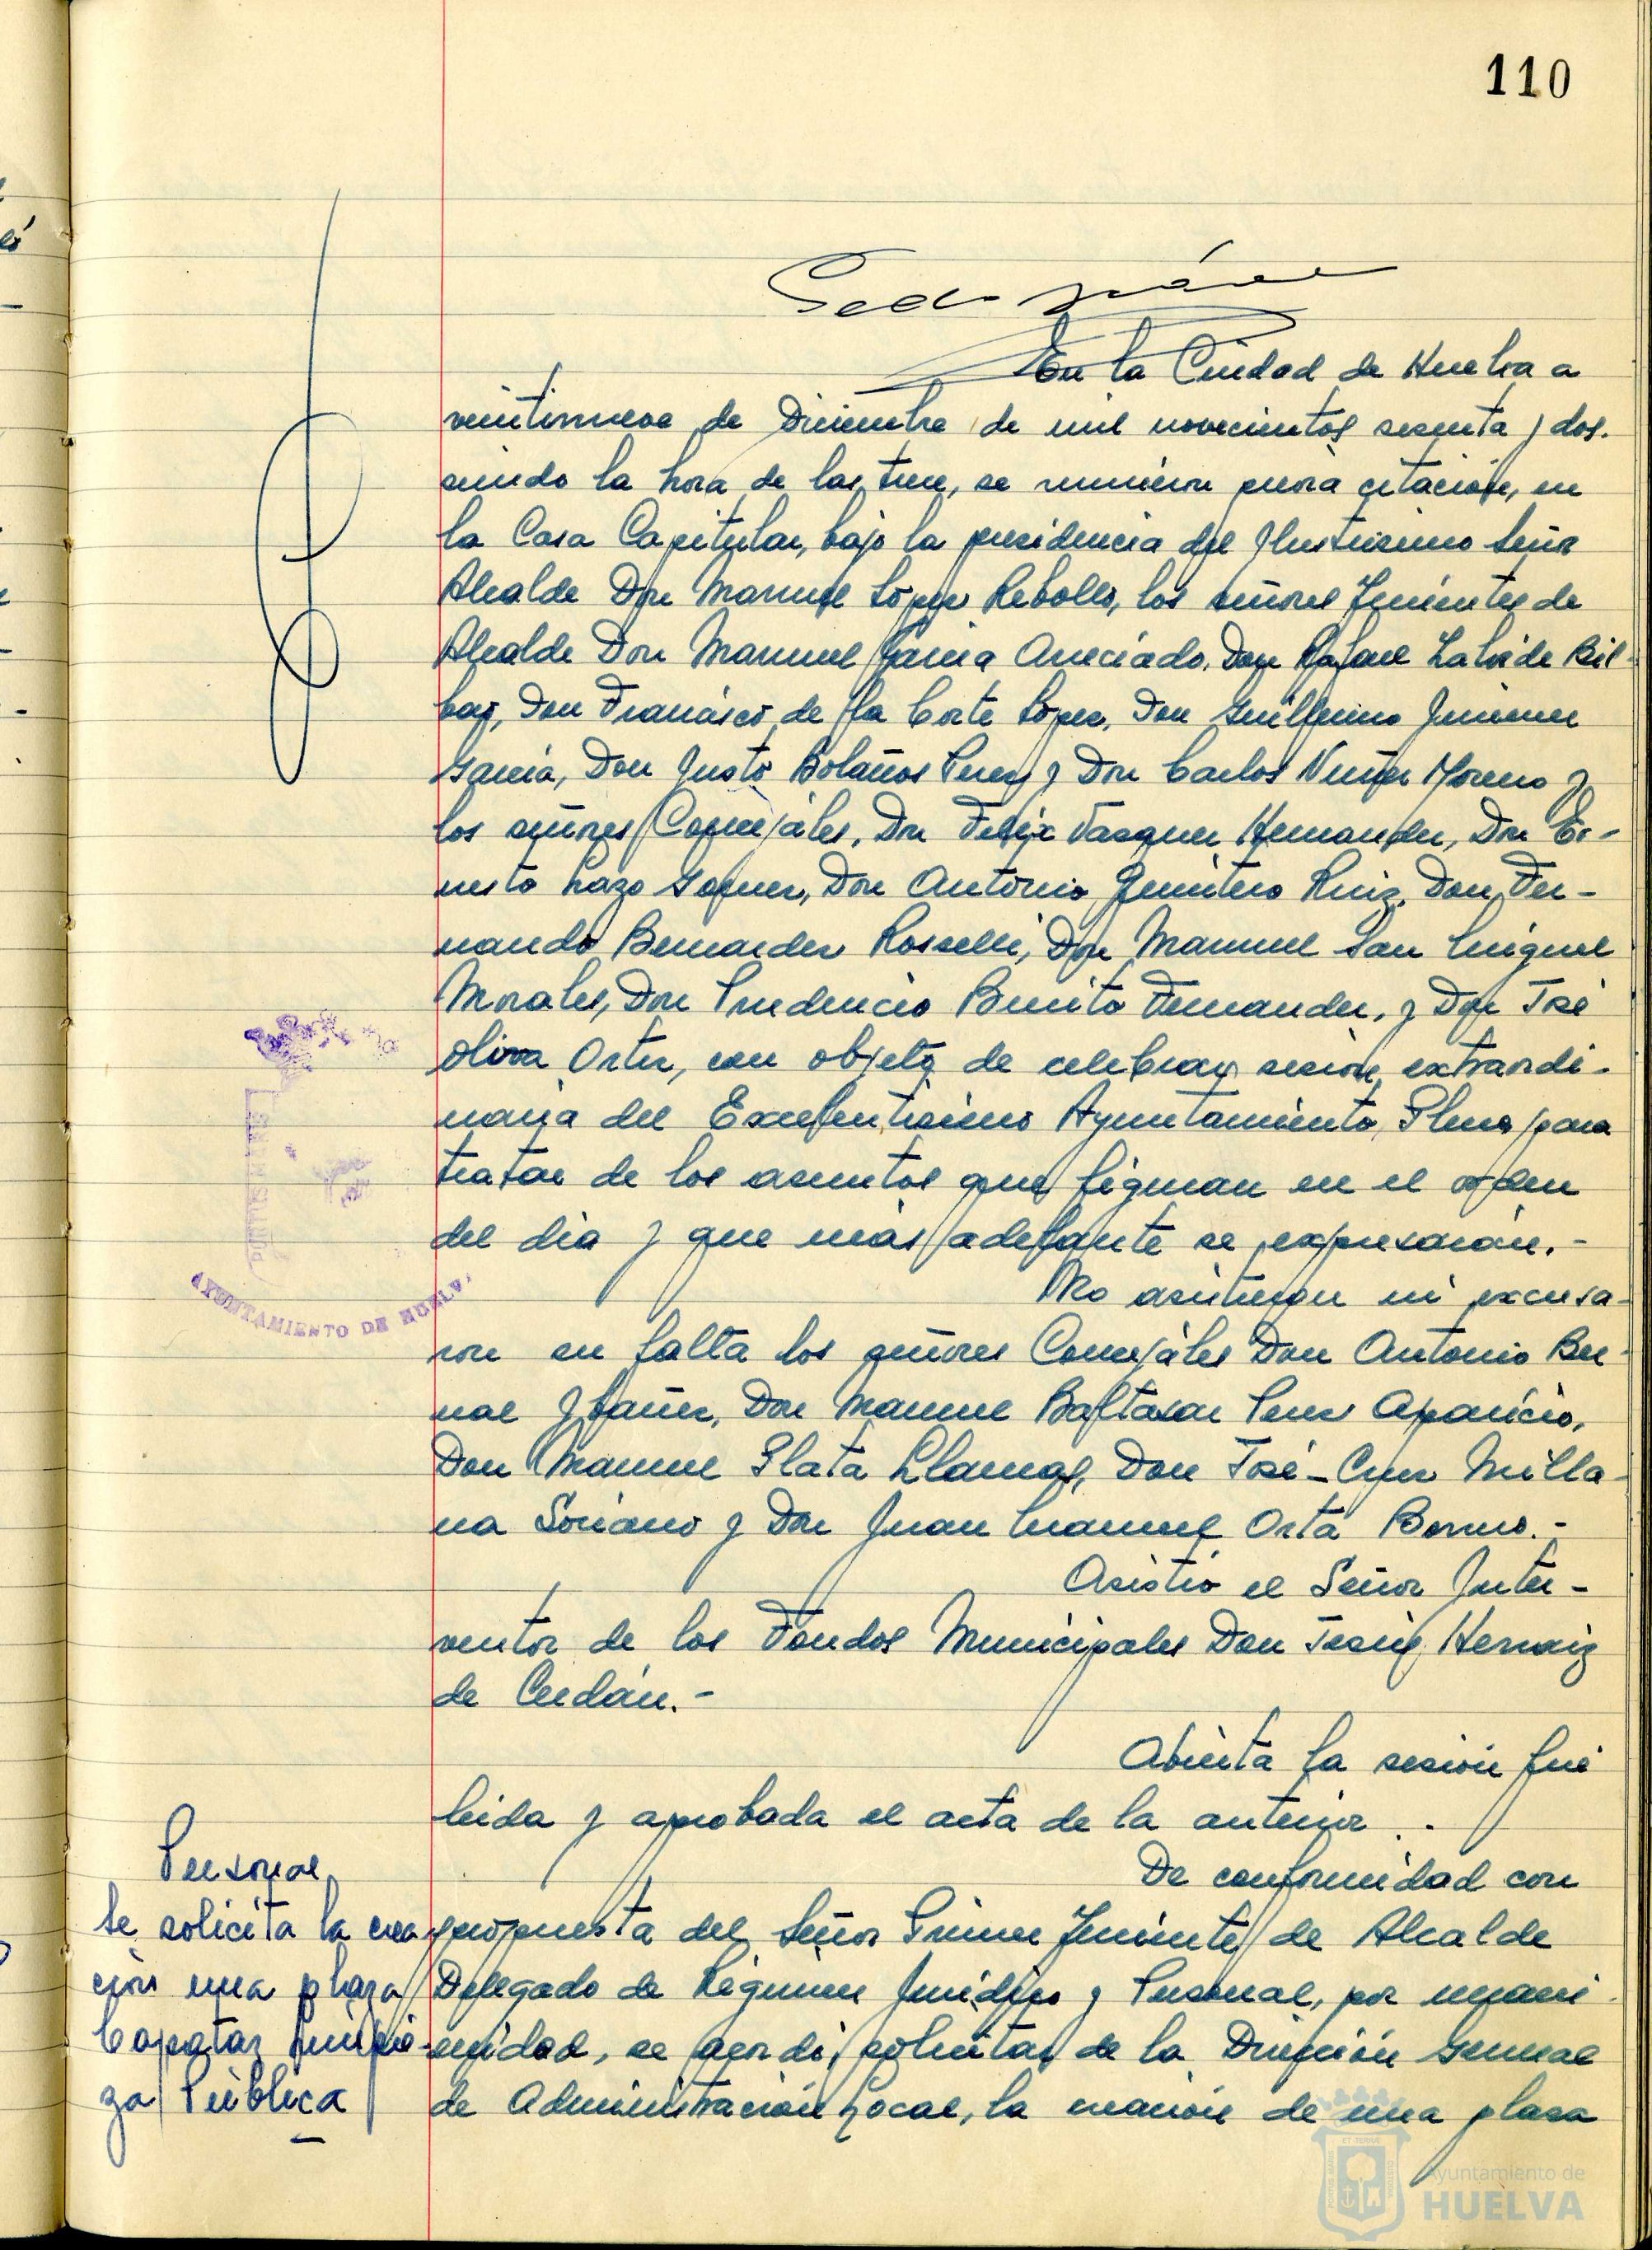 110
En la Ciudad de Huelva a
veintinueve de Diciembre de mil novecientos sesenta y dos.
siendo la hora de las trece, se reunieron previa citación, en
la Casa Capitular, bajo la presidencia del Ilustrisimo Señor
Alcalde Don Manuel López Rebollo, los señores Tenientes de
Alcalde Don Manuel Garcia Aneciado, Don Rafael Labide Bil-
bao, Don Francisco de la Corte López, Don Guillermo Jimenez
Garcia, Don Justo Bolaños Perez y Don Carlos Nuñez Moreno y
los señores Concejales, Don Felix Vazquez Hernandez, Don Er-
nesto Lazo Gomez, Don Antonio Quintero Ruiz, Don Fer-
nando Bernardez Rosselli, Don Manuel San Miguel
Morales, Don Prudencio Benito Fernandez, y Don José
Oliva Ortiz, con objeto de celebrar sesión extraordi-
naria del Excelentisimo Ayuntamiento Pleno para
tratar de los asuntos que figuran en el orden
del dia y que más adelante se expresarán.-
No asistieron ni excusa-
ron su falta los señores Concejales Don Antonio Ber-
nal Ibañez, Don Manuel Baltasar Perez Aparicio,
Don Manuel Plata Llamas, Don José-Cruz Milla-
na Soriano y Don Juan Manuel Orta Borrero.-
Asistió el Señor Inter-
ventor de los Fondos Municipales Don Jesús Hernaiz
de Cerdán.-
Abierta la sesión fué
leida y aprobada el acta de la anterior.-
De conformidad con
propuesta del Señor Primer Teniente de Alcalde
Delegado de Régimen Juridico y Personal, por unani-
midad, se acordó, solicitar de la Dirección General
de Administración Local, la creación de una plaza
Personal
Se solicita la crea
ción una plaza
Capataz Limpie-
za Pública
AYUNTAMIENTO DE HUELVA
Ayuntamiento de
HUELVA